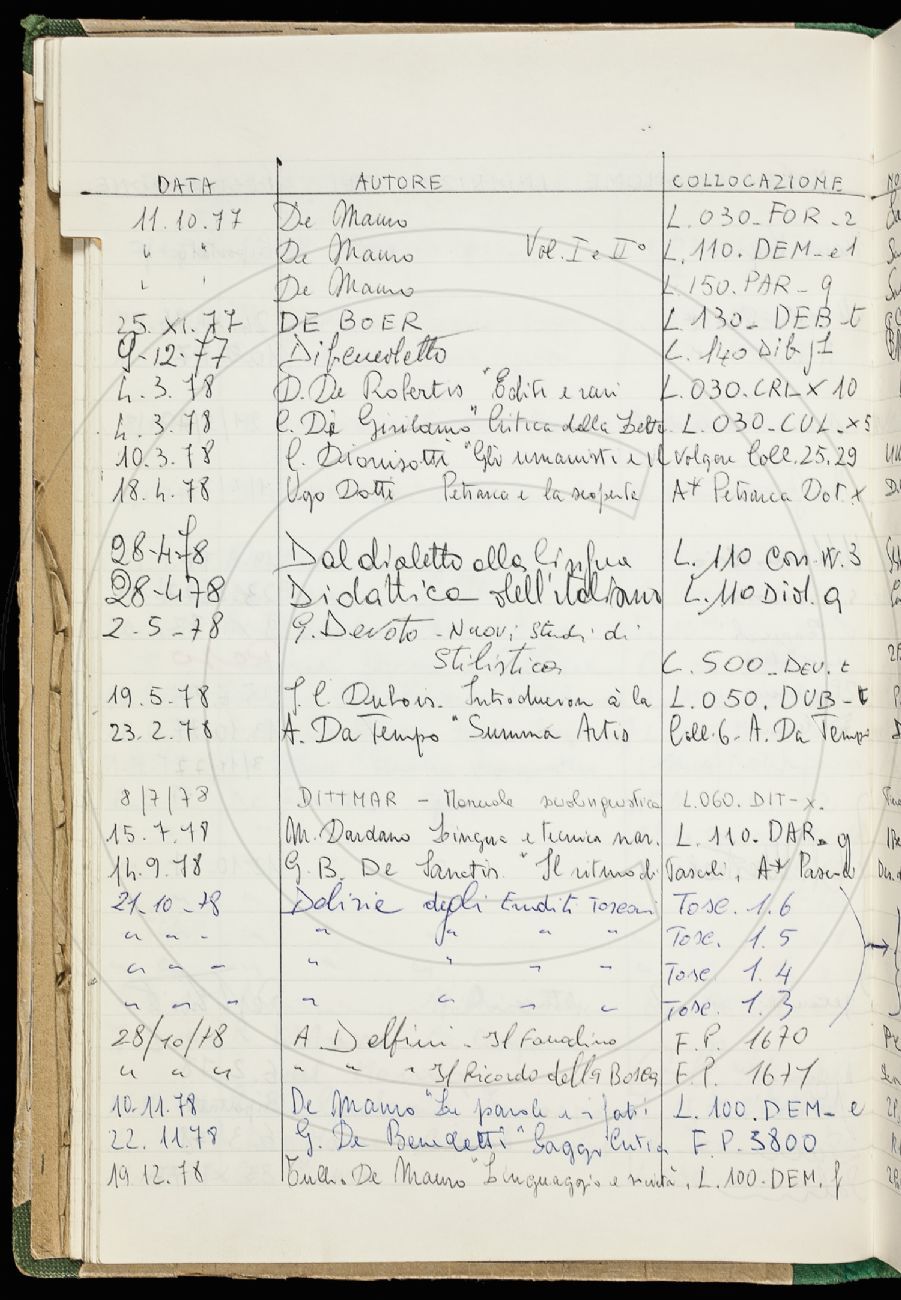 DATA AUTORE COLLOCAZIONE
11.10.77 De Mauro L.030-FOR-2
" " De Mauro Vol. I e II° L.110.DEM-e1
" " De Mauro L.150.PAR-9
25.XI.77 DE BOER L.130-DEB-t
9-12-77 Dibenedetto
4.3.78 D. De Robertis "Editi e rari L.030.CRL X 10
4.3.78 C. De Girolamo "Critica della Lett. L.030-CUL-X5
10.3.78 C. Dionisotti "Gli umanisti e il volgare Coll.25.29
18.4.78 Ugo Dotti Petrarca e la scoperta A+ Petrarca Dot. X
28-4-78 Dal dialetto alla lingua L.110
28-4-78 Didattica dell'italiano L.110
2-5-78 G. Devoto - Nuovi studi di
Stilistica L.500-DEV.t
19.5.78 J.C. Dubois. Introduction à la L.050.DUB-t
23.2.78 A. Da Tempo "Summa Artis Coll.6-A. Da Tempo
8/7/78 DITTMAR - Manuale L.060.DIT-X.
15.7.78 M. Dardano Lingua e tecnica nar. L.110.DAR-9
14.9.78 G.B. De Sanctis "Il ritmo di Pascoli, A+
21-10-78 Delizie degli Eruditi Toscani Tosc. 1.6
" " - " " " " Tosc. 1.5
" " - " " " " Tosc. 1.4
" " " " " " " Tosc. 1.3
28/10/78 A. Delfini - Il Fanalino F.P. 1670
" " " " " " Il Ricordo della Bosca F.P. 1671
10-11.78 De Mauro "Le parole e i fatti L.100.DEM-e
22.11.78 G. De Benedetti "Saggi Critici F.P. 3800
19.12.78 Tullio De Mauro "Linguaggio e società, L.100.DEM.f